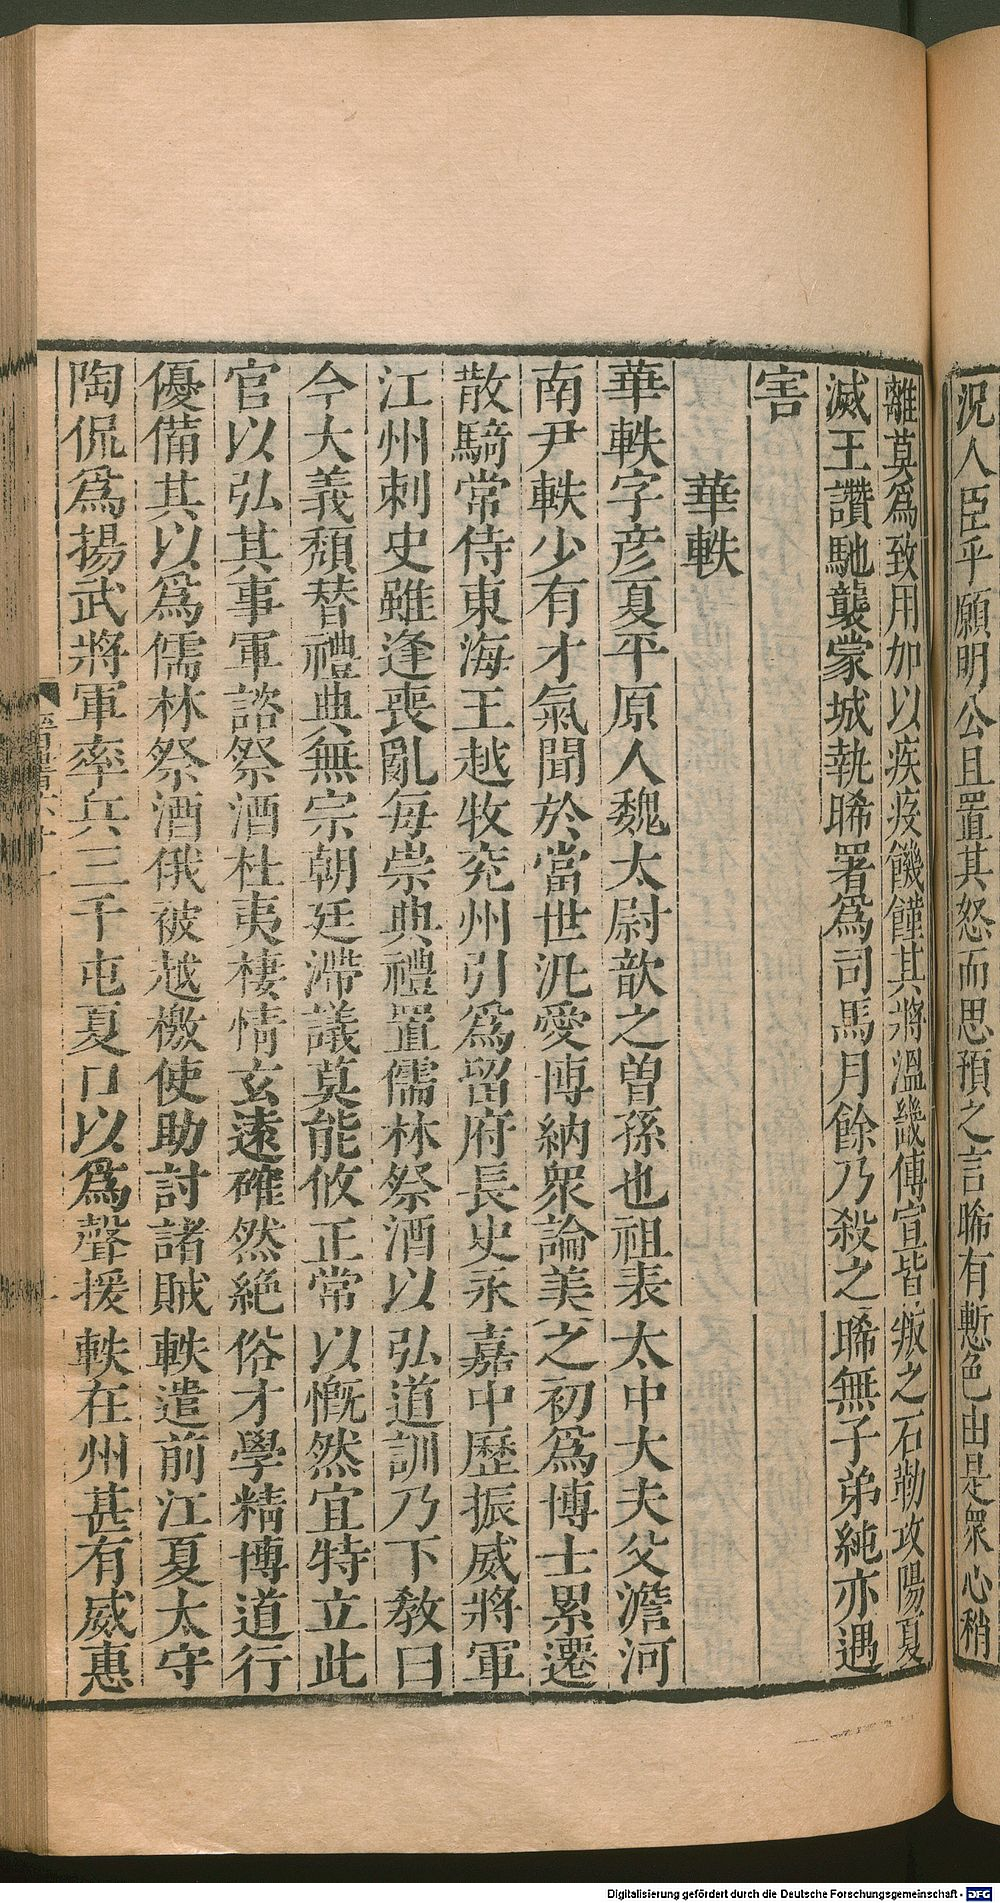 況人臣乎願明公且置其怒而思預之言晞有慙色由是眾心稍
離莫爲致用加以疾疫饑饉其將溫畿傅宣皆叛之石勒攻陽夏
滅王讚馳襲蒙城執晞署爲司馬月餘乃殺之晞無子弟純亦遇
害
華軼
華軼字彦夏平原人魏太尉歆之曽孫也祖表太中大夫父澹河
南尹軼少有才氣聞於當世汎愛博納眾論美之初爲博士累遷
散騎常侍東海王越牧兖州引爲留府長史永嘉中歷振威將軍
江州刺史雖逢喪亂每崇典禮置儒林祭酒以弘道訓乃下敎曰
今大義頹替禮典無宗朝廷滯議莫能攸正常以慨然宜特立此
官以弘其事軍諮祭酒杜夷棲情玄遠確然絕俗才學精博道行
優備其以爲儒林祭酒俄被越檄使助討諸賊軼遣前江夏太守
陶侃爲揚武將軍率兵三千屯夏口以爲聲援軼在州甚有威惠
Digitalisierung gefördert durch die Deutsche Forschungsgemeinschaft - DFG